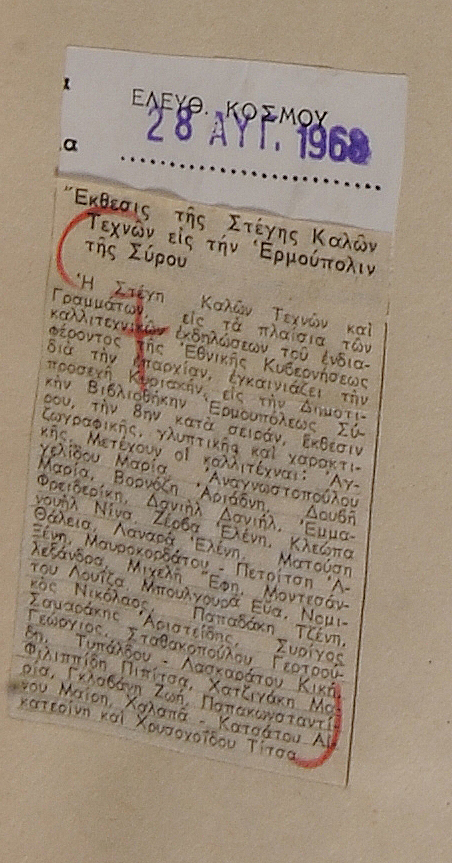 α
ΕΛΕΥΘ. ΚΟΣΜΟΥ
28 ΑΥΓ. 1968
α
Ἔκθεσις τῆς Στέγης Καλῶν
Τεχνῶν εἰς τήν Ἑρμούπολιν
τῆς Σύρου
Ἡ Στέγη Καλῶν Τεχνῶν καὶ
Γραμμάτων, εἰς τὰ πλαίσια τῶν
καλλιτεχνικῶν ἐκδηλώσεων τοῦ ἐνδια-
φέροντος τῆς Ἐθνικῆς Κυβερνήσεως
διὰ τὴν ἐπαρχίαν, ἐγκαινιάζει τὴν
προσεχῆ Κυριακήν, εἰς τὴν Δημοτι-
κὴν Βιβλιοθήκην Ἑρμουπόλεως Σύ-
ρου, τὴν 8ην κατὰ σειράν, ἔκθεσιν
ζωγραφικῆς, γλυπτικῆς καὶ χαρακτι-
κῆς. Μετέχουν οἱ καλλιτέχναι: Ἀγ-
γελίδου Μαρία, Ἀναγνωστοπούλου
Μαρία, Βορνόζη Ἀριάδνη, Δουβῆ
Φρειδερίκη, Δανιὴλ Δανιήλ, Ἐμμα-
νουὴλ Νίνα, Ζέρβα Ἑλένη, Κλεώπα
Θάλεια, Λαναρᾶ Ἑλένη, Ματούση
Ξένη, Μαυροκορδάτου - Πετρίτση Ἀ-
λεξάνδρα, Μιχελῆ Ἔφη, Μοντεσάν-
του Λουΐζα, Μπουλγουρᾶ Εὔα, Νομι-
κὸς Νικόλαος, Παπαδάκη Τζένη,
Σαμαράκης Ἀριστείδης, Συρίγος
Γεώργιος, Σταθακοπούλου Γερτρού-
δη, Τυπάλδου - Λασκαράτου Κική,
Φιλιππίδη Πιπίτσα, Χατζιγάκη Μα-
ρία, Γκλαβάνη Ζωή, Παπακωνσταντί-
νου Μαίρη, Χαλαπᾶ - Κατσάτου Αἰ-
κατερίνη καὶ Χρυσοχοΐδου Τίτσα